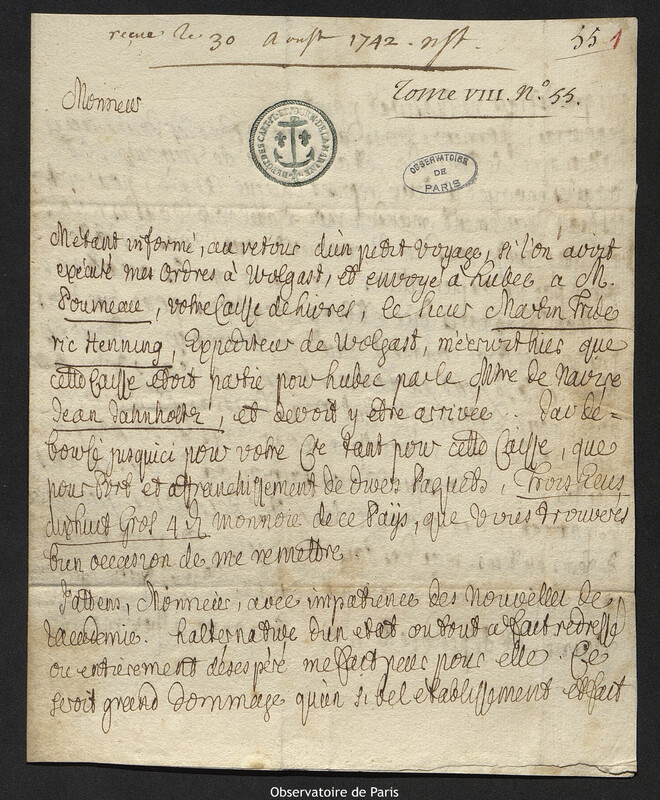 reçue le 30 Aoust 1742. nst.
55 1
Tome VIII. N.º 55.
Monsieur
DEPOT DES CARTES ET JOURN. DE LA MARINE
OBSERVATOIRE
DE
PARIS
M'étant informé, au retour d'un petit voyage, si l'on avoit
exécuté mes Ordres à Wolgast, et envoyé à Lubec a M.
Poumeau, votre Caisse de Livres, le Sieur Martin Fride
ric Hennung, Expediteur de Wolgast, m'écrivit hier que
cette Caisse etoit partie pour Lubec par le Mtre de Navire
Jean Dahnholtz, et devoit y etre arrivée. J'ai dé=
boursé jusqu'ici pour votre Cte tant pour cette Caisse, que
pour Port et affranchissement de divers Paquets, Trois Ecus
dixhuit Gros 4 monnoie de ce Pays, que vous trouverés
bien occasion de me remettre.
J'attens, Monsieur, avec impatience des Nouvelles de
l'academie. L'alternative d'un etat ou tout a fait redressé
ou entierement désespéré me fait peur pour elle. Ce
seroit grand dommage qu'un si bel etablissement et fait
Observatoire de Paris